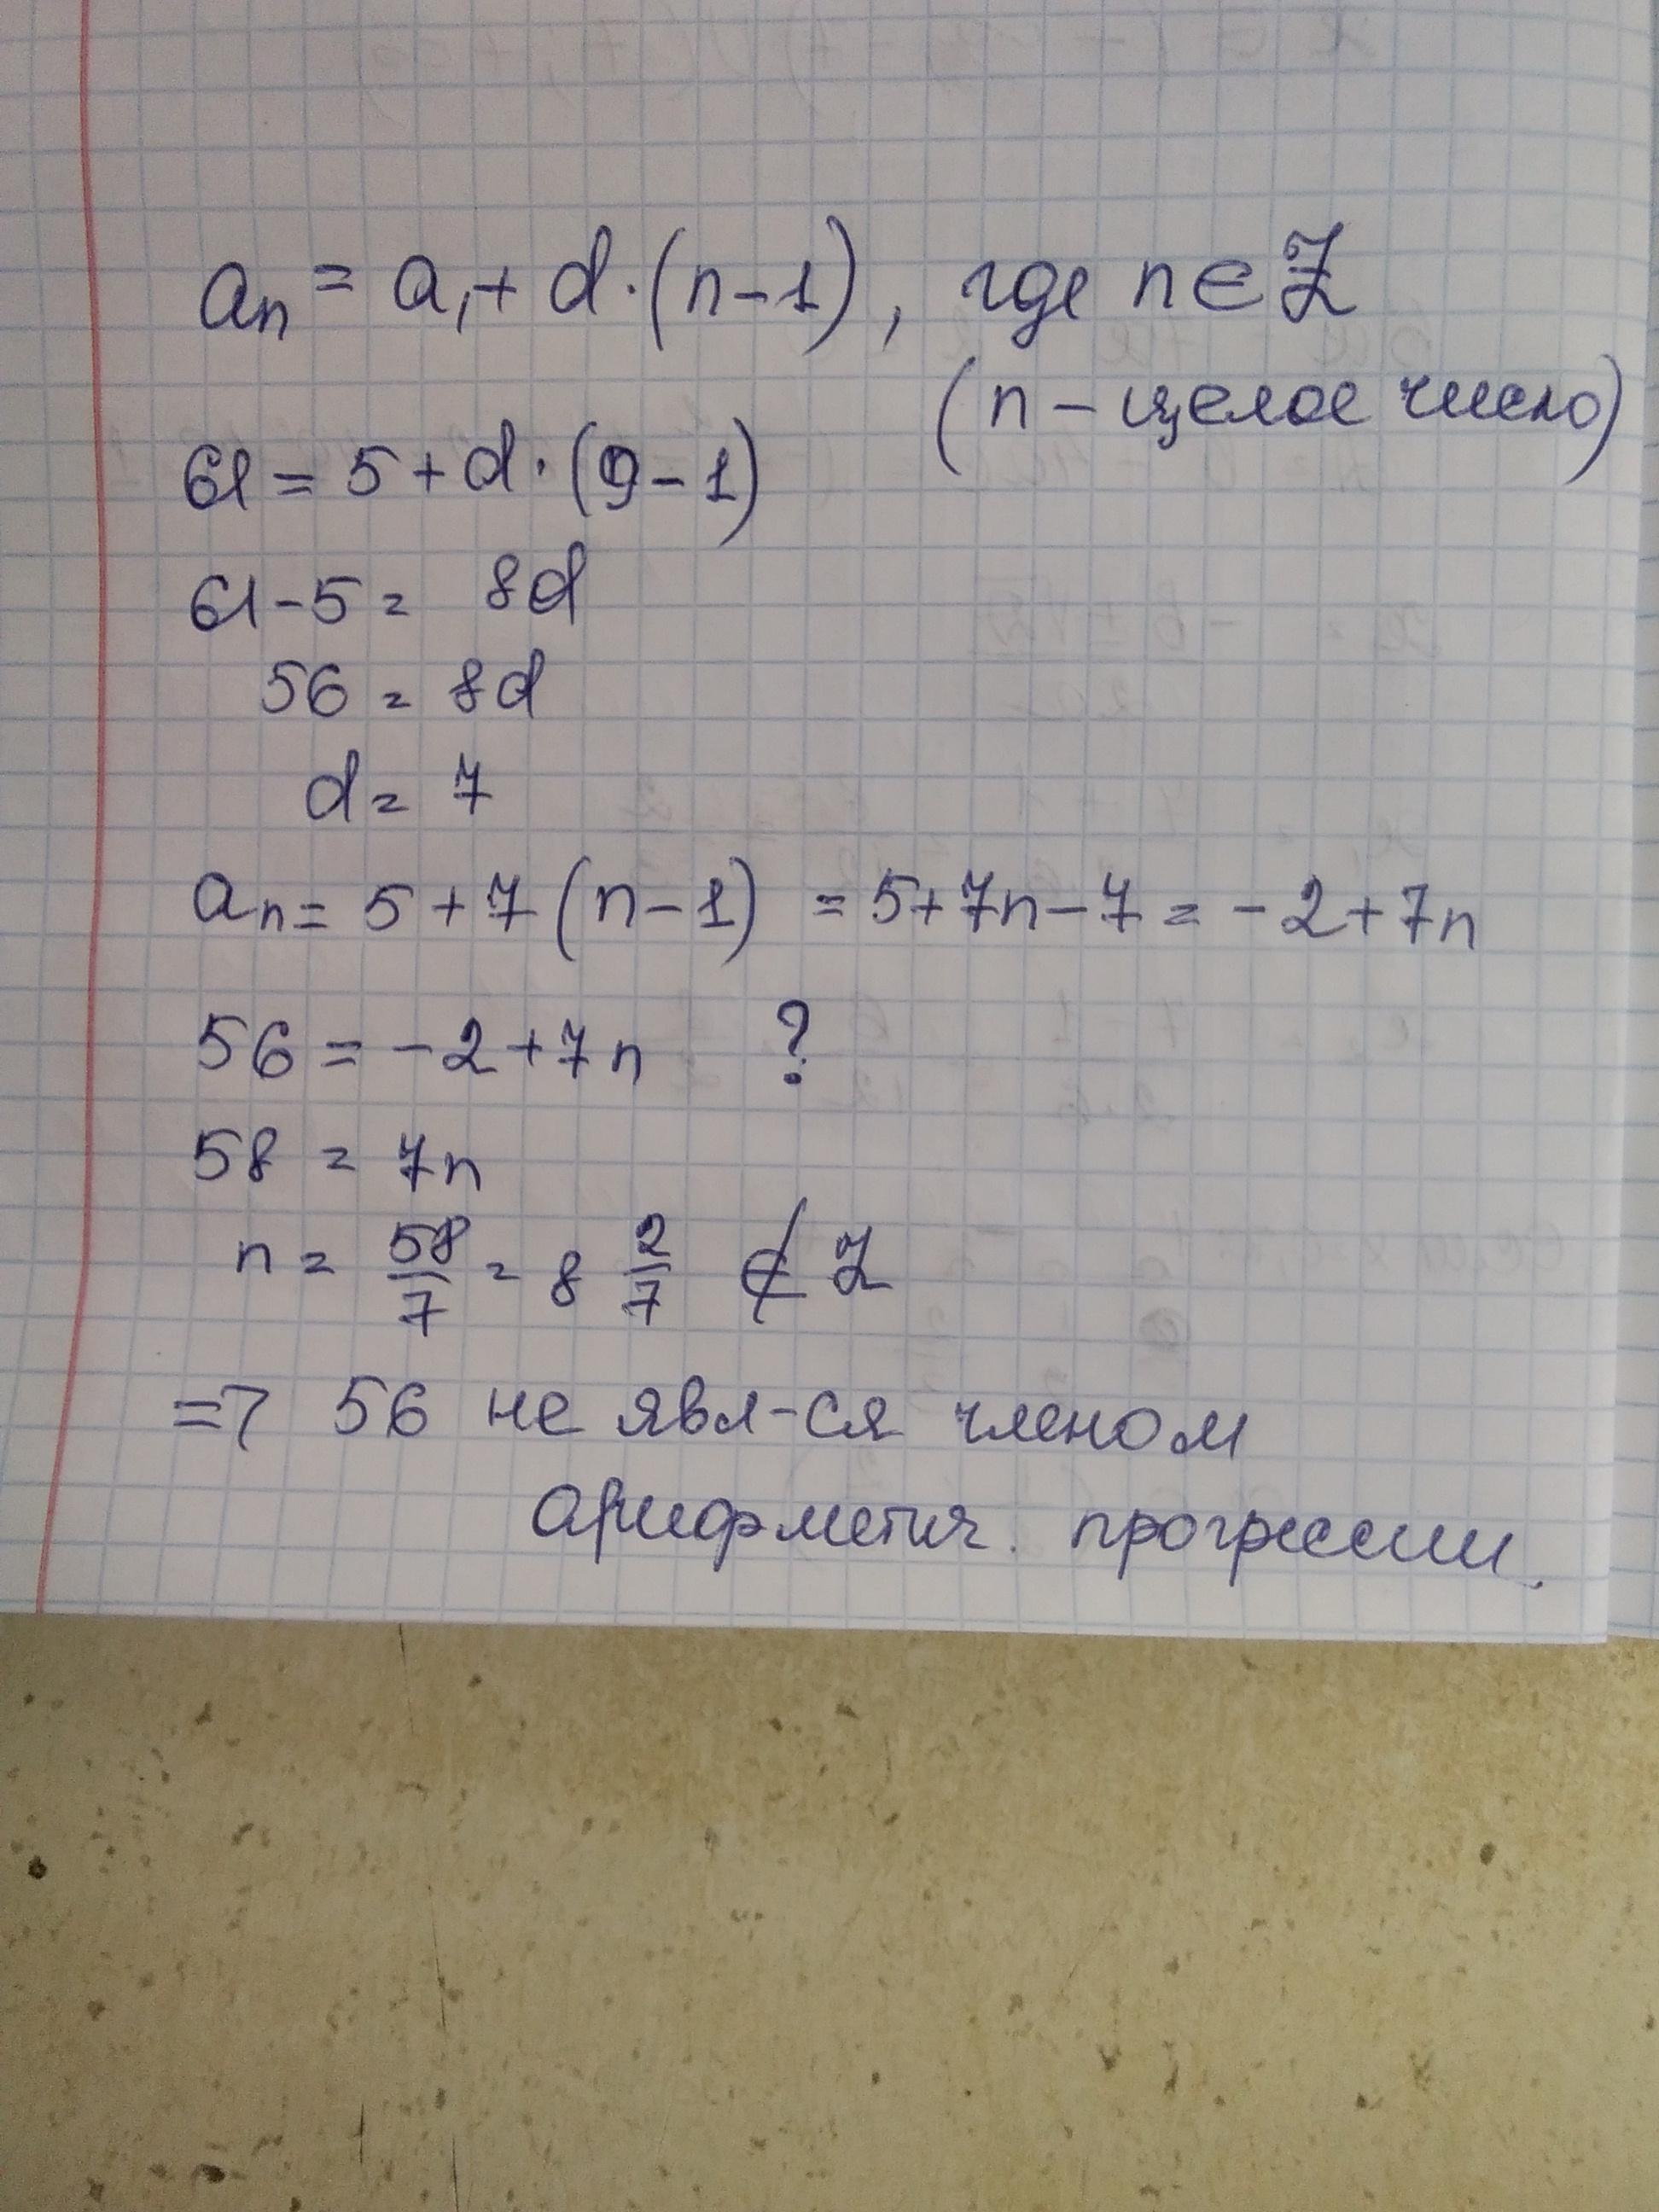 aₙ = a₁ + d·(n-1), где n∈Z
(n - целое число)
61 = 5 + d·(9-1)
61-5 = 8d
56 = 8d
d = 7
aₙ = 5 + 7(n-1) = 5+7n-7 = -2+7n
56 = -2+7n ?
58 = 7n
n = 58/7 = 8 2/7 ∉ Z
=> 56 не явл-ся членом
арифметич. прогрессии.